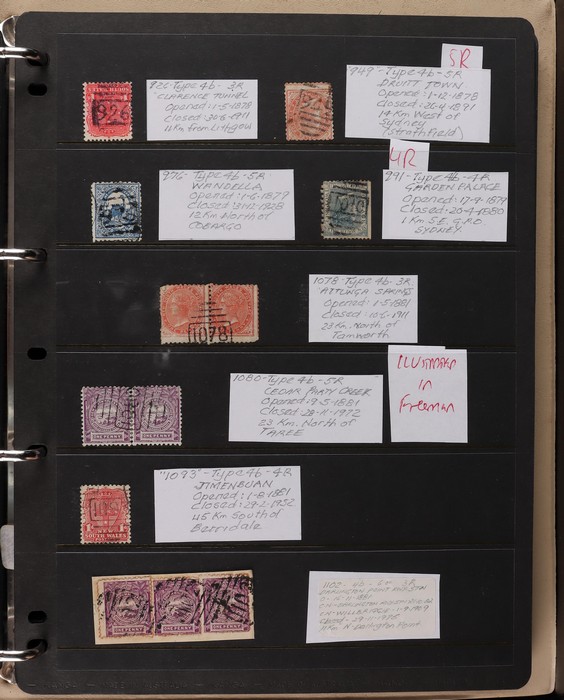 5R
926 - Type 4b - 3R
CLARENCE TUNNEL
Opened: 11-5-1878
Closed: 30-6-1911
11Km from Lithgow
926
"949" - Type 4b - 5R
DRUITT TOWN
Opened: 1-12-1878
Closed: 26-4-1891
14 Km West of
Sydney
(Strathfield)
4R
976 - Type 4b - 5R
WANDELLA
Opened: 1-6-1879
Closed:
12 Km North of
COBARGO
991 - Type 4b - 4R
GARDEN PALACE
Opened: 17-9-1879
Closed: 20-4-1880
1 Km S.E. G.P.O
SYDNEY
1078 - Type 4b - 3R
ATTUNGA SPRINGS
Opened: 1-5-1881
Closed: 10-6-1911
23 Km. North of
Tamworth
1078
1080 - Type 4b - 5R
CEDAR PARTY CREEK
Opened: 9-5-1881
Closed: 29-11-1972
23 Km. North of
TAREE
ILLUSTRATED
in
Freeman
ONE PENNY ONE PENNY
"1093" - Type 4b - 4R
JIMENBUAN
Opened: 1-8-1881
Closed: 29-2-1952
45 Km South of
Berridale
SOUTH WALES
1102 - 4b - 3R
DARLINGTON POINT
Closed - 29-11-1978
Km N. Darlington Point
ONE PENNY ONE PENNY ONE PENNY